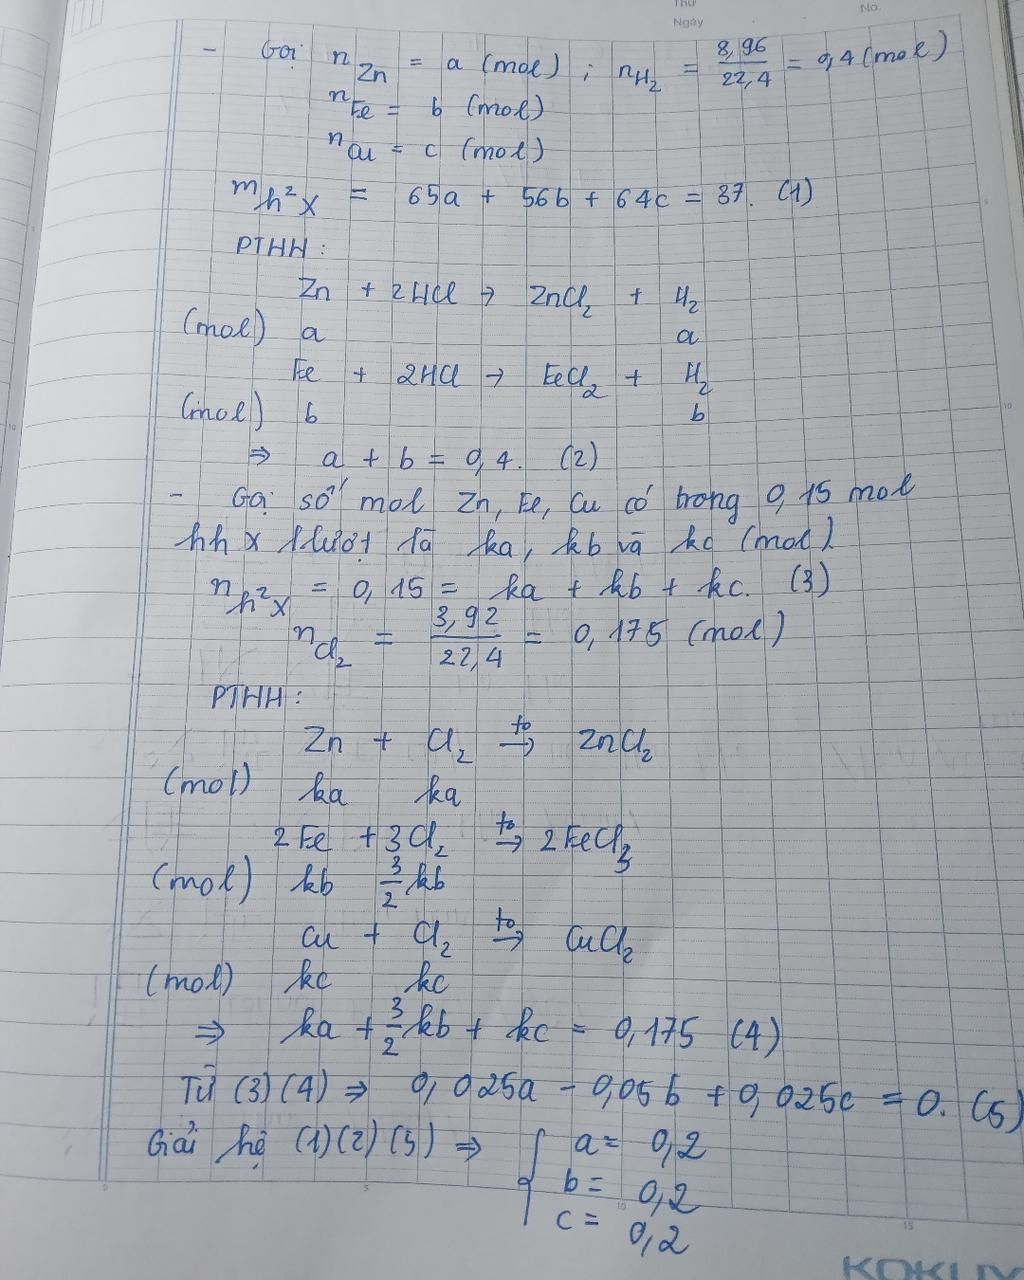 Thứ
Ngày
No.
- Gọi n Zn = a (mol) ; nH₂ = 8,96/22,4 = 0,4 (mol)
n Fe = b (mol)
n Cu = c (mol)
m h² X = 65a + 56b + 64c = 37. (1)
PTHH :
Zn + 2HCl → ZnCl₂ + H₂
(mol) a a
Fe + 2HCl → FeCl₂ + H₂
(mol) b b
⇒ a + b = 0,4. (2)
- Gọi số mol Zn, Fe, Cu có trong 0,15 mol
hh X lượt là ka, kb và kc (mol)
n h² X = 0,15 = ka + kb + kc. (3)
n Cl₂ = 3,92/22,4 = 0,175 (mol)
PTHH :
Zn + Cl₂ →(to) ZnCl₂
(mol) ka ka
2Fe + 3Cl₂ →(to) 2FeCl₃
(mol) kb 3/2 kb
Cu + Cl₂ →(to) CuCl₂
(mol) kc kc
⇒ ka + 3/2 kb + kc = 0,175 (4)
Từ (3) (4) ⇒ 0,025a - 0,05b + 0,025c = 0. (5)
Giải hệ (1) (2) (5) ⇒ { a = 0,2
b = 0,2
c = 0,2
0 5 10 15
KOKUY